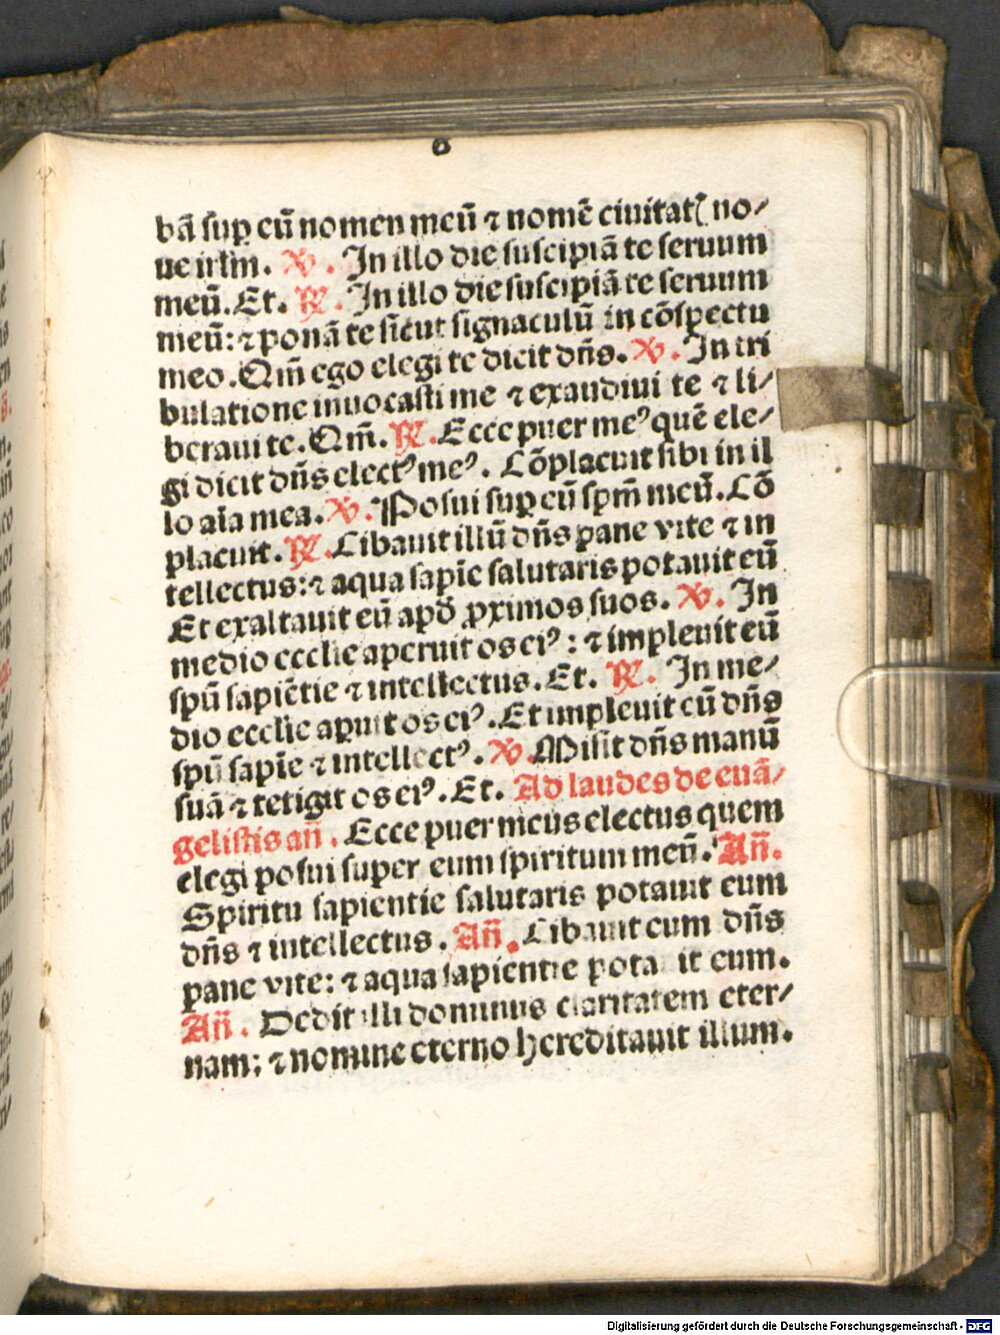 bā suꝑ eū nomen meū ⁊ nomē ciuitatꝭ no⸗
ue irlm̄. ℣. In illo die suscipiā te seruum
meū. Et. ℟. In illo die suscipiā te seruum
meū: ⁊ ponā te sicut signaculū in cōspectu
meo. Qm̄ ego elegi te dicit dn̄s. ℣. In tri
bulatione inuocasti me ⁊ exaudiui te ⁊ li⸗
beraui te. Qm̄. ℟. Ecce puer meꝰ quē ele⸗
gi dicit dn̄s electꝰ meꝰ. Cōplacuit sibi in il
lo aīa mea. ℣. Posui suꝑ eū spm̄ meū. Cō
placuit. ℟. Cibauit illū dn̄s pane vite ⁊ in
tellectus: ⁊ aqua sapīe salutaris potauit eū
Et exaltauit eū apd̄ ꝓximos suos. ℣. In
medio ecclīe aperuit os eiꝰ: ⁊ impleuit eū
spū sapiētie ⁊ intellectus. Et. ℟. In me⸗
dio ecclīe aꝑuit os eiꝰ. Et impleuit eū dn̄s
spū sapīe ⁊ intellectꝰ. ℣. Misit dn̄s manū
suā ⁊ tetigit os eiꝰ. Et. Ad laudes de euā⸗
gelistis an̄. Ecce puer meus electus quem
elegi posui super eum spiritum meū. An̄.
Spiritu sapientie salutaris potauit eum
dn̄s ⁊ intellectus. An̄. Cibauit eum dn̄s
pane vite: ⁊ aqua sapientie potauit eum.
An̄. Dedit illi dominus claritatem eter⸗
nam: ⁊ nomine eterno hereditauit illum.
Digitalisierung gefördert durch die Deutsche Forschungsgemeinschaft - DFG